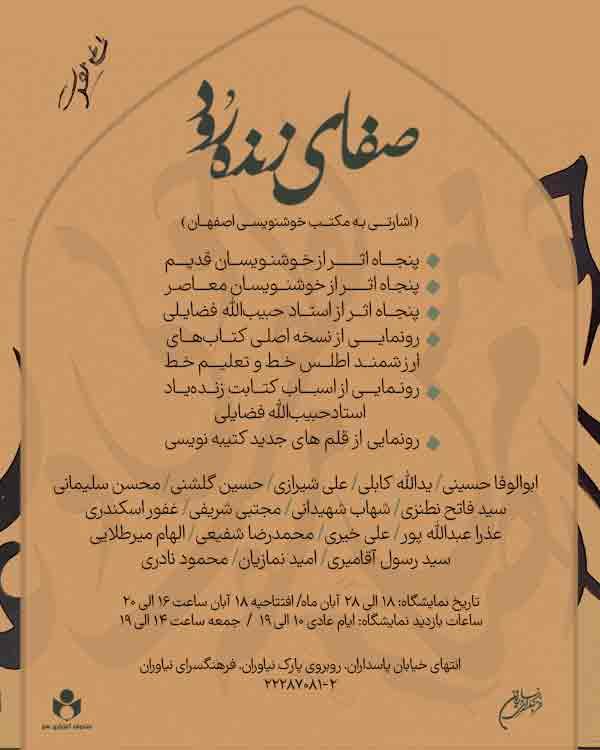 صفای زنده رود
(اشارتی به مکتب خوشنویسی اصفهان)
پنجاه اثر از خوشنویسان قدیم
پنجاه اثر از خوشنویسان معاصر
پنجاه اثر از استاد حبیب‌الله فضایلی
رونمایی از نسخه اصلی کتاب‌های
ارزشمند اطلس خط و تعلیم خط
رونمایی از اسباب کتابت زنده‌یاد
استاد حبیب‌الله فضایلی
رونمایی از قلم های جدید کتیبه نویسی
ابوالوفا حسینی/ یدالله کابلی/ علی شیرازی/ حسین گلشنی/ محسن سلیمانی
سید فاتح نطنزی/ شهاب شهیدانی/ مجتبی شریفی/ غفور اسکندری
عذرا عبدالله پور/ علی خیری/ محمدرضا شفیعی/ الهام میرطلایی
سید رسول آقامیری/ امید نمازیان/ محمود نادری
تاریخ نمایشگاه: ۱۸ الی ۲۸ آبان ماه/ افتتاحیه ۱۸ آبان ساعت ۱۶ الی ۲۰
ساعات بازدید نمایشگاه: ایام عادی ۱۰ الی ۱۹ / جمعه ساعت ۱۴ الی ۱۹
انتهای خیابان پاسداران، روبروی پارک نیاوران، فرهنگسرای نیاوران
۲۲۲۸۷۰۸۱-۲